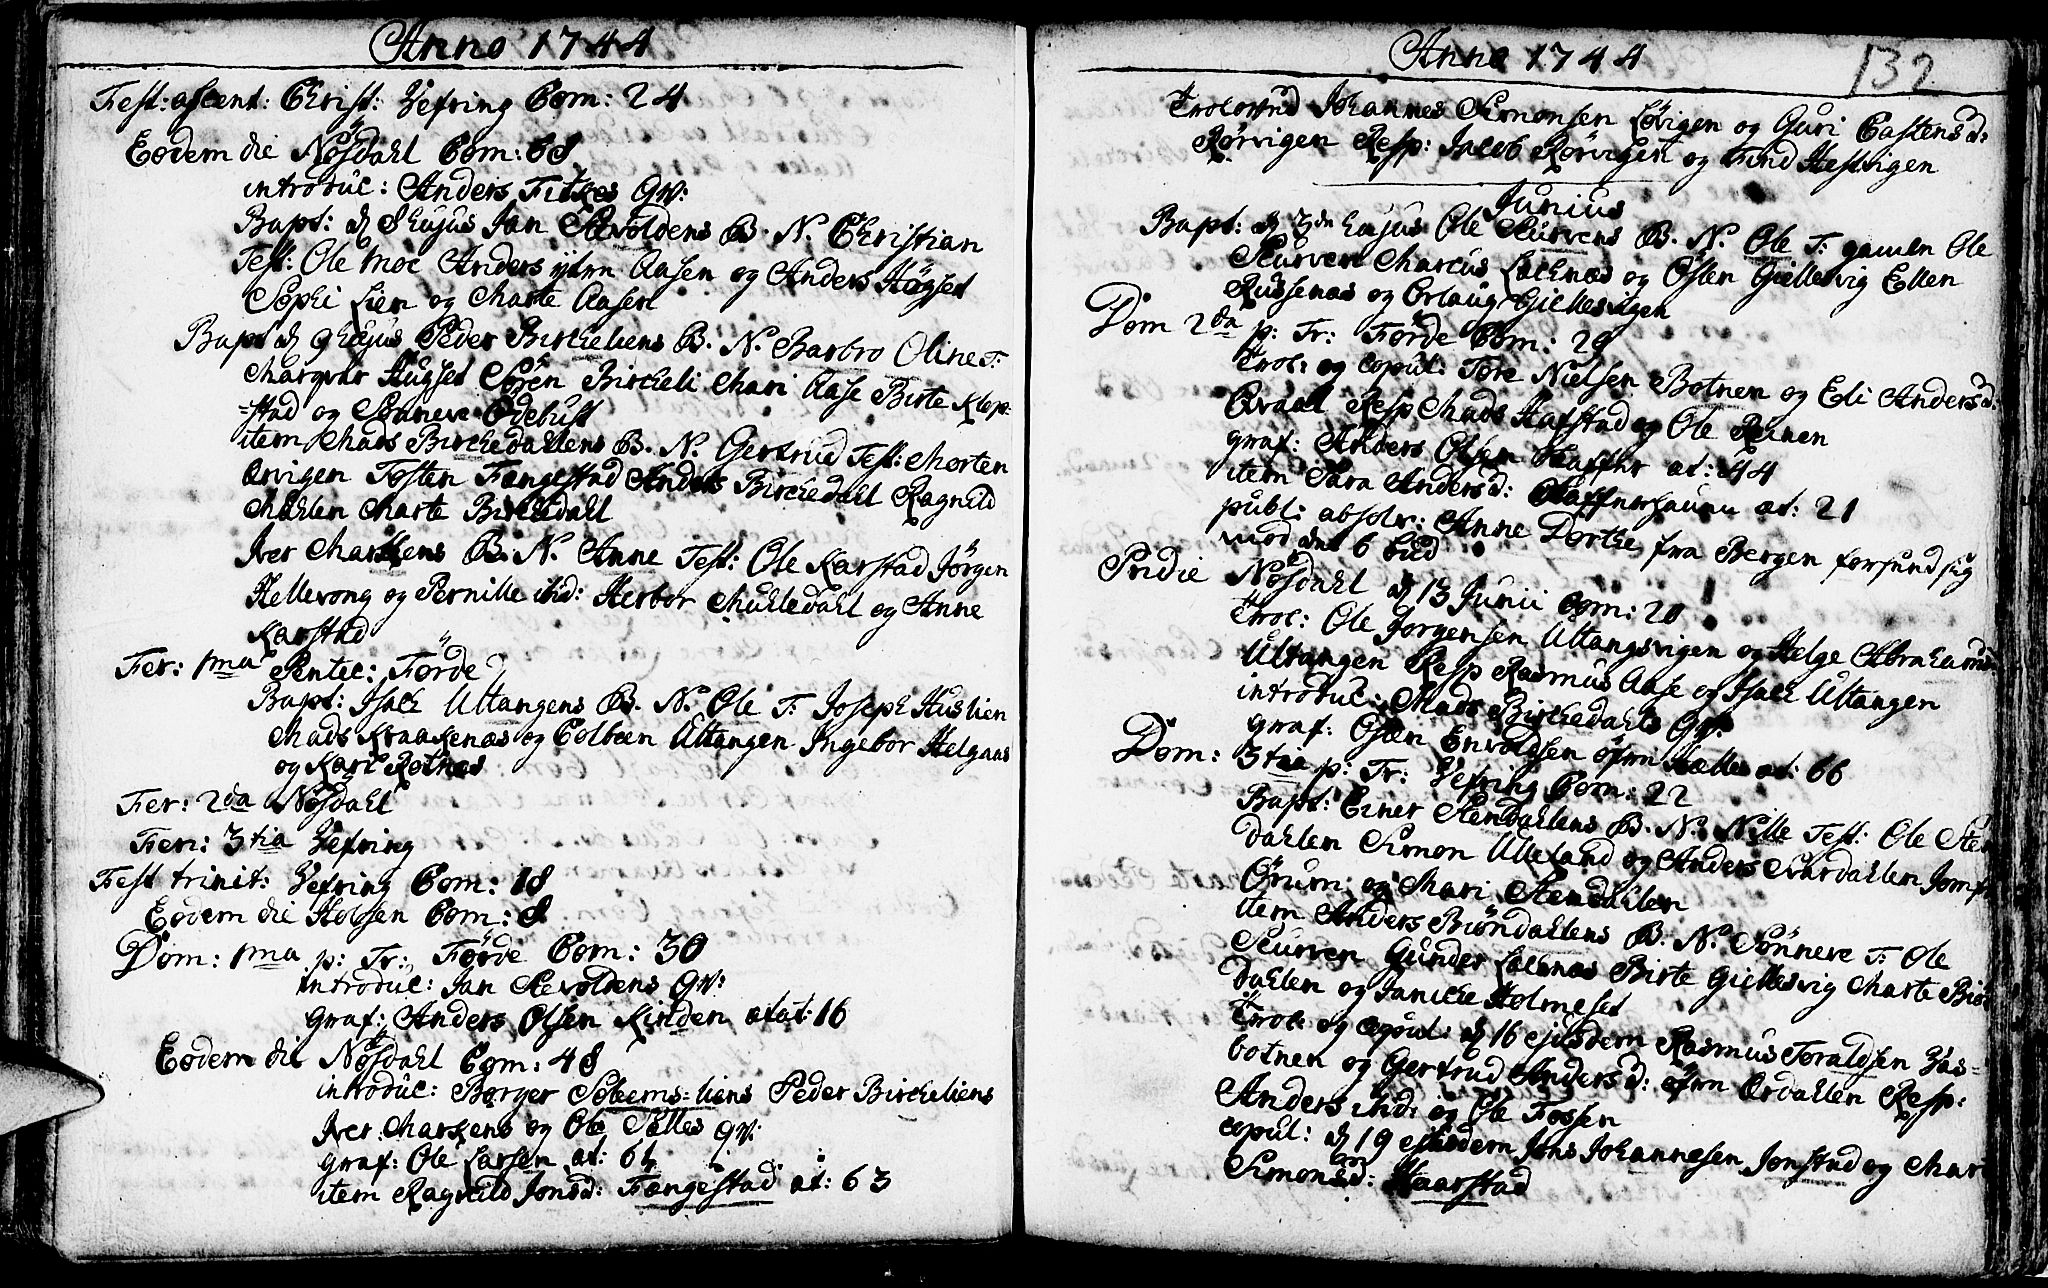 Anno 1744
Fest: ascent: Christ: Vefring Com: 24
Eodem die Nösdahl Com: 68
introduc: Anders Fitzes qv:
Bapt: d 8 hujus Jan Sevoldens B. N. Christian
Test: Ole Moe Anders ytrn Aasen og Anders Högset
Sophi Lien og Marte Aasen
Bapt d 9 hujus Peder Birckeliens B. N. Barbro Oline T:
Margvar Hugset Sören Birckeli Mari Aase Birte Klep-
=stad og Sönneve Ödebust
item Mads Birckedahlens B. N. Gertrud Test: Morten
Ervigen Tosten Fængestad Anders Birckedahl Ragnild
Mæhlen Marte Birckedahl
Iver Markens B. N. Anne Test: Ole Karstad Jörgen
Hellevong og Pernille ibid: Herbor Muhledahl og Anne
Karstad
Fer: 1ma Pentec: Förde
Bapt: Isach Ultangens B. N. Ole T: Joseph Huslien
Mads Kraakenæs og Colbeen Ultangen Ingebor Helgaas
og Kari Rotnes
Fer: 2da Nösdahl
Fer: 3tia Vefring
Fest trinit: Vefring Com: 18
Eodem die Holsen Com: 8
Dom: 1ma p: Tr: Förde Com: 30
introduc: Jan Sevoldens qv:
graf: Anders Olsen Kinden ætat: 16
Eodem die Nösdahl Com: 48
introduc: Börger Soleems-liens Peder Birckeliens
Iver Markens og Ole Solles qv:
graf: Ole Larsen æt: 61
item Ragnild Jonsd: Fængestad æt: 63
Anno 1744
132
Trolovud Johannes Simonsen Lövigen og Guri Castensd:
Rörvigen Resp: Jacob Rörvigen og Find Hestvigen
Junius
Bapt: d 3de hujus Ole Skurvens B. N. Ole T: gamlen Ole
Skurven Marcus Lachnæs og Össen Giellesvig Ellen
Russenæs og Orlaug Giellesvigen
Dom 2da p: Tr: Förde Com: 29
Trol: og copul: Tore Nielsen Botnen og Eli Andersd:
Qvaal Resp Mads Hafstad og Ole Reinen
graf: Anders Olsen Haffnr æt: 44
item Sara Andersd: Haffnerhaunn æt: 21
publ: absolv: Anne Dorthe fra Bergen forsund sig
mod det 6 bud
Pridie Nösdahl d 13 Junii Com: 20
Trol: Ole Jörgensen Ultangsvigen og Helge Abrahamsd
Ultangen Resp Rasmus Aase og Isach Ultangen
introduc: Mads Birckedahls qv:
graf: Össen Envoldsen öfrn Hælle æt: 66
Dom: 3tia p: Tr: Vefring Com: 22
Bapt: Einer Stendahlens B. N. Nille Test: Ole Sten
dahlen Simon Ulleland og Anders Svardahlen Jomfr
Örum og Mari Stendahlen
item Anders Biöndahlens B. N. Sönneve T: Ole
Skurven Gunder Lachnæs Birte Giellesvig Marte Biön
dahlen og Janicke Holmeset
Trol: og copul: d 16 ejusdem Rasmus Toraldsen Vas-
botnen og Gertrud Andersd: öfrn Erdahlen Resp:
Anders ibid: og Ole Fossen
copul: d 19 ejusdem Jens Johannesen Jonstad og Mari
Simonsd: Haarstad